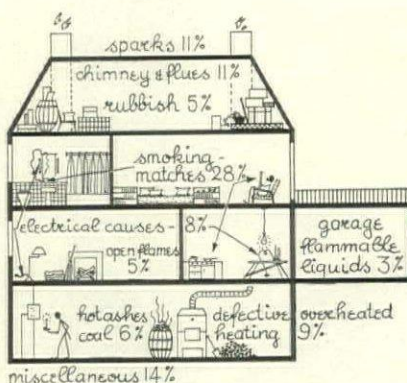 sparks 11%
chimney & flues 11%
rubbish 5%
smoking -
matches 28%
electrical causes -
8%
open flames
5%
garage
flammable
liquids 3%
hot ashes
coal 6%
defective
heating
overheated
9%
miscellaneous 14%